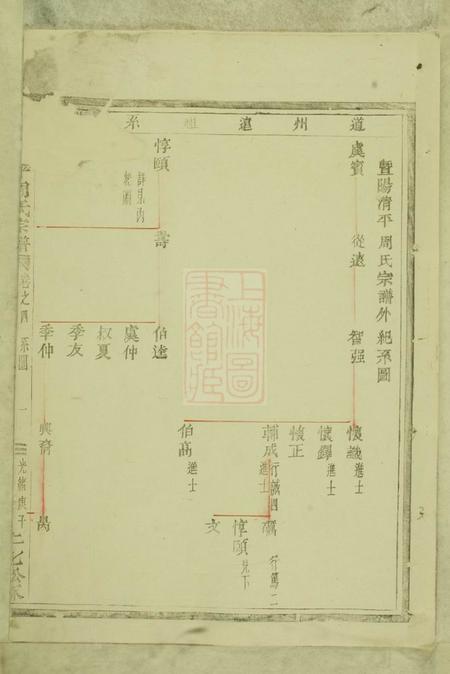 暨陽清平周氏宗譜外紀系圖
道州遠祖系
虞賓
從遠
智强
懷識進士
懷鐸進士
懷正
輔成行誠四進士
伯高進士
礪行萬二
惇頤見下
文
惇頤
壽
伯逵
虞仲
叔夏
季友
季仲
興裔
周氏宗譜
卷之四
系圖
一
光緒庚子
上海圖書館藏